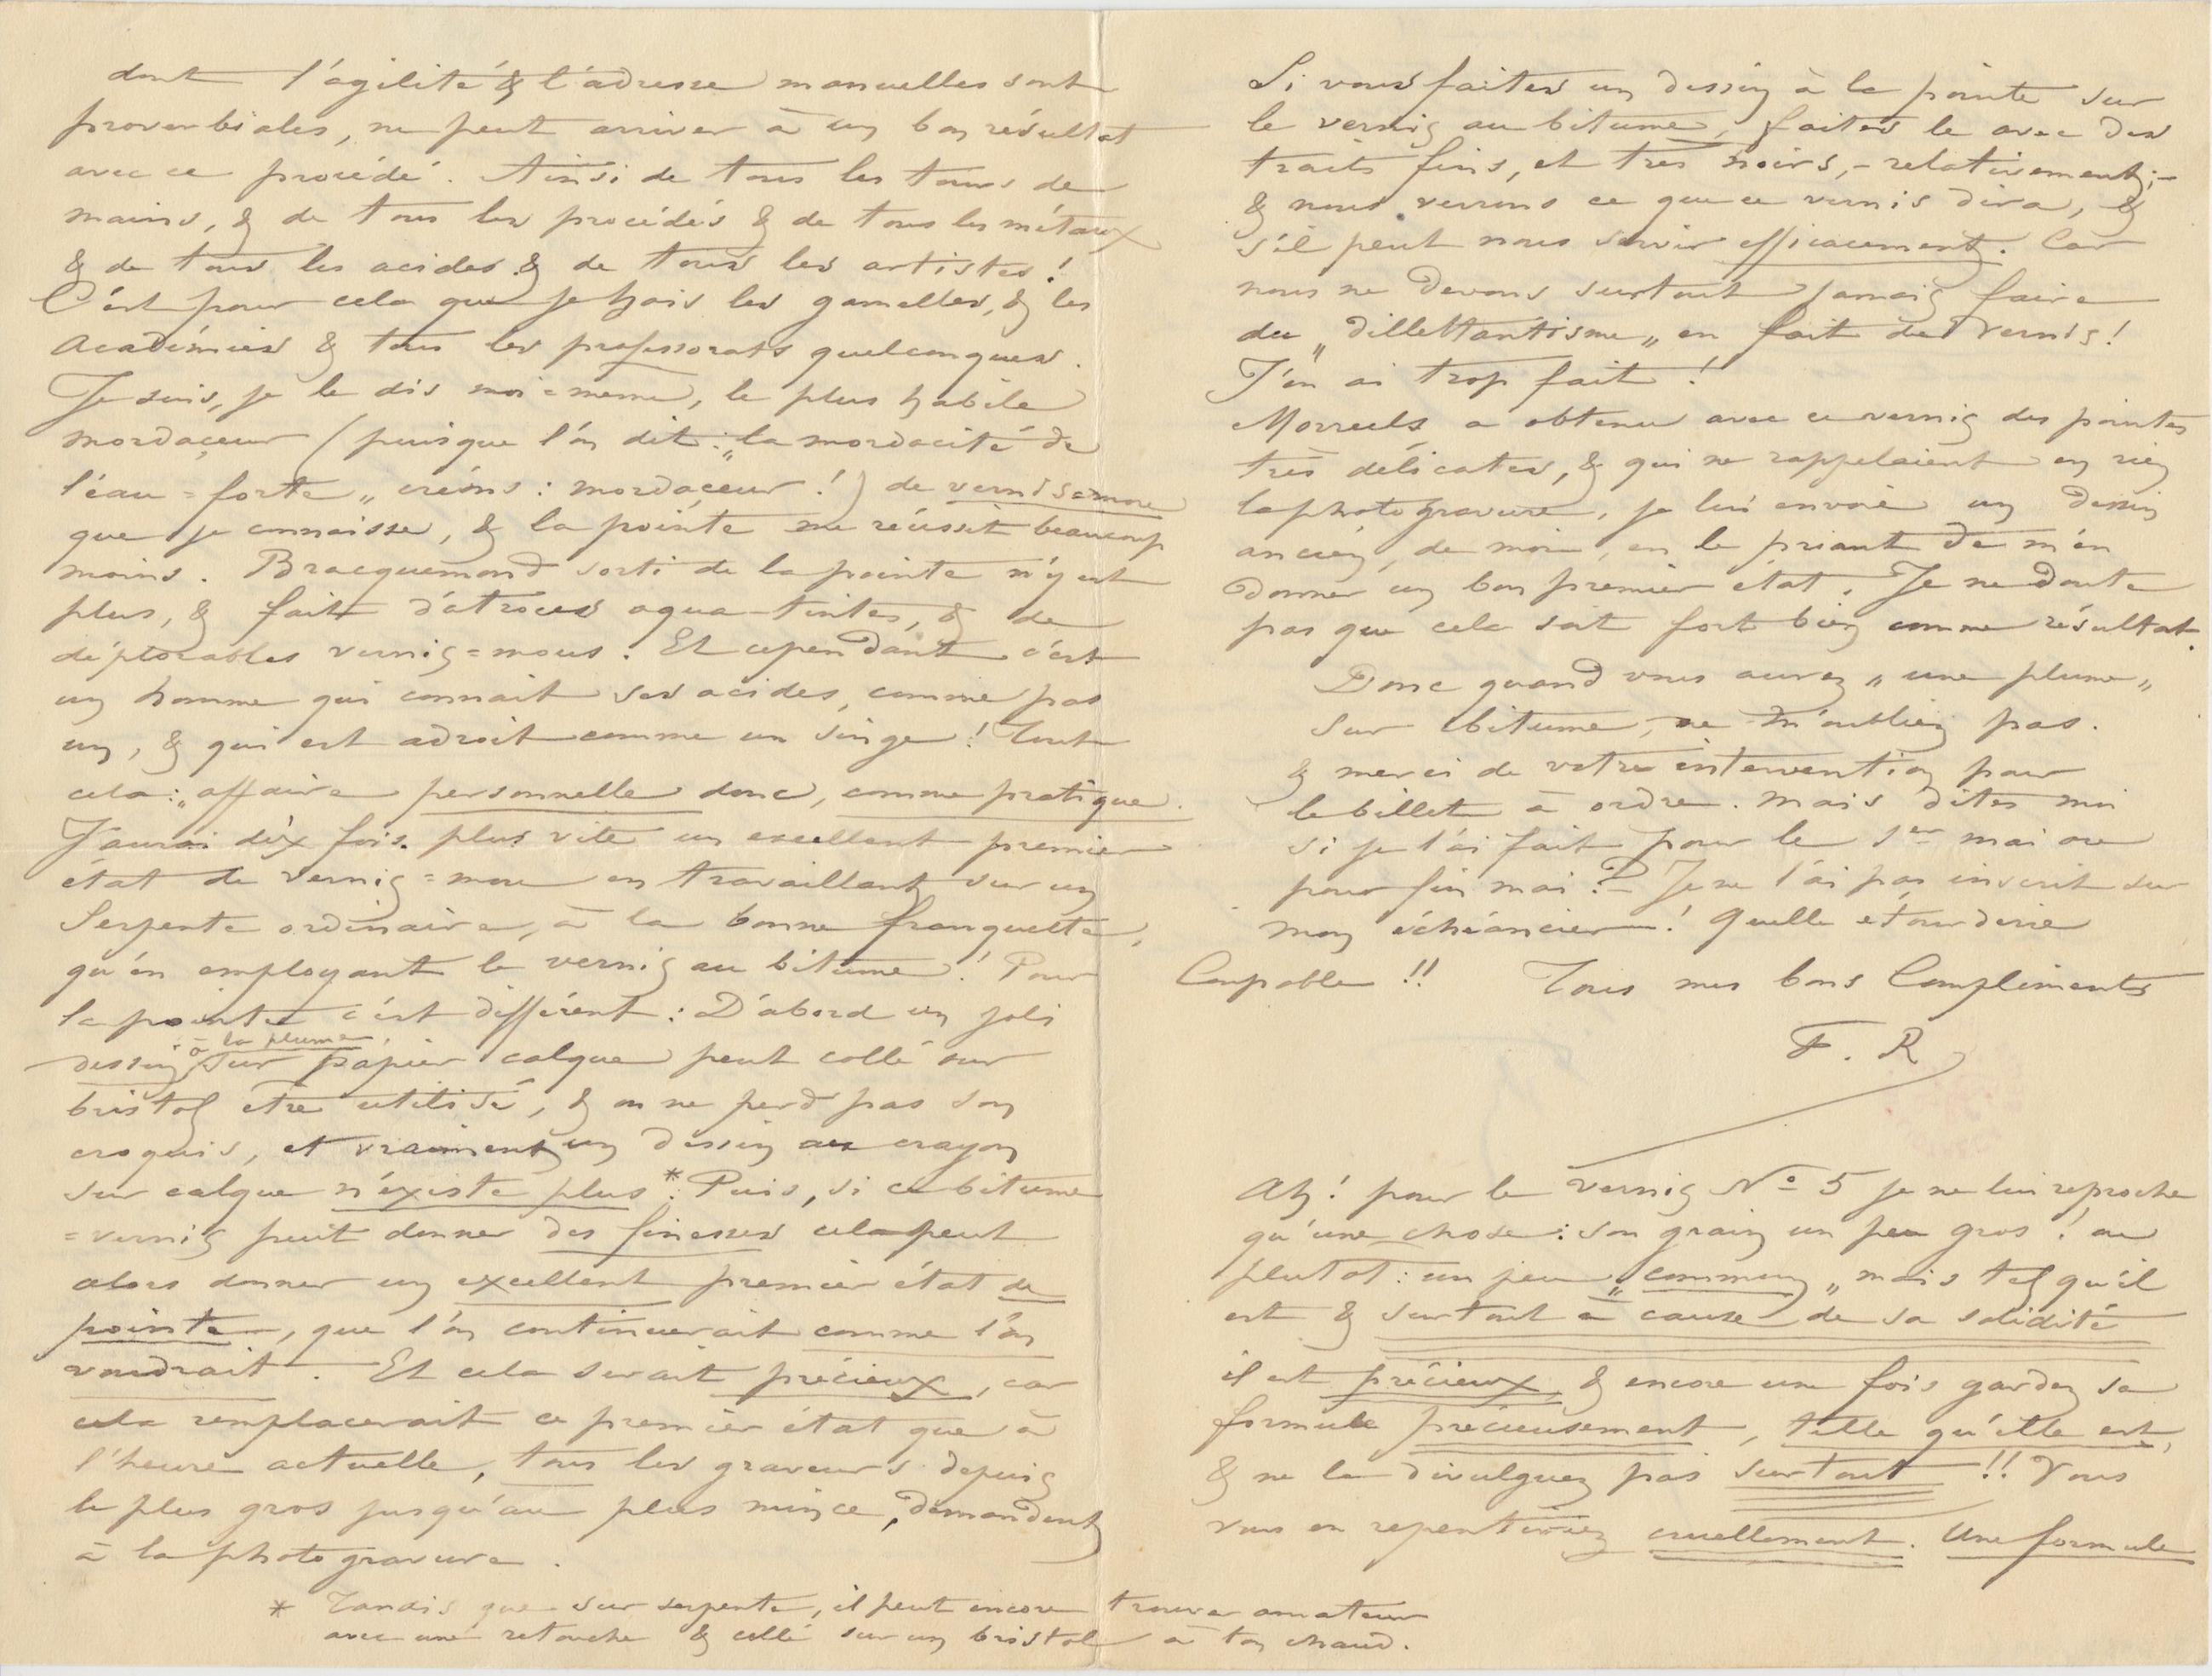 dont l'agilité & l'adresse manuelles sont
proverbiales, ne peut arriver à un bon résultat
avec ce procédé. Ainsi de tous les tours de
mains, & de tous les procédés & de tous les métaux
& de tous les acides & de tous les artistes!
C'est pour cela que je hais les gamelles, & les
Académies & tous les professorats quelconques.
Je suis, je le dis moi=meme, le plus habile
mordaçeur (puisque l'on dit: „la mordacité de
l'eau=forte„ créons: mordaçeur!) de vernis=mou
que je connaisse, & la pointe me réussit beaucoup
moins. Bracquemond sorti de la pointe n'y est
plus, & fait d'atroces aqua-tintes, & de
déplorables vernis=mous. Et cependant c'est
un homme qui connait ses acides, comme pas
un, & qui est adroit comme un singe! Tout
cela: „affaire personnelle donc, comme pratique.
J'aurai dix fois plus vite un excellent premier
état de vernis=mou en travaillant sur un
Serpente ordinaire, à la bonne franquette,
qu'en employant le vernis au bitume! Pour
la pointe c'est différent: D'abord un joli
dessin à la plume sur papier calque peut collé sur
bristol etre utilisé, & on ne perd pas son
croquis, et vraiment un dessin au crayon
sur calque n'existe plus*. Puis, si ce bitume
=vernis peut donner des finesses cela peut
alors donner un excellent premier état de
pointe, que l'on continuerait comme l'on
voudrait. Et cela serait précieux, car
cela remplacerait ce premier état que à
l'heure actuelle, tous les graveurs depuis
le plus gros jusqu'au plus mince, demandent
à la photogravure.
* Tandis que sur serpente, il peut encore trouver amateur
avec une retouche & collé sur un bristol à ton chaud.
Si vous faites un dessin à la pointe sur
le vernis au bitume, faites le avec des
traits fins, et très noirs, - relativement;-
& nous verrons ce que ce vernis dira, &
s'il peut nous servir efficacement. Car
nous ne devons surtout jamais faire
du „dillettantisme„ en fait de vernis!
J'en ai trop fait!
Morreels a obtenu avec ce vernis des pointes
très délicates, & qui ne rappelaient en rien
la photogravure, je lui envoie un dessin
ancien, de moi, en le priant de m'en
donner un bon premier état. Je ne doute
pas que cela soit fort bien comme résultat.
Donc quand vous aurez „une plume„
sur bitume, ne m'oubliez pas.
& merci de votre intervention pour
le billet à ordre. Mais dites moi
si je l'ai fait pour le 1er mai ou
pour fin mai? - Je ne l'ai pas inscrit sur
mon échéancier! Quelle etourderie
Coupable!! Tous mes bons Compliments
F. R
Ah! pour le vernis No 5 je ne lui reproche
qu'une chose: son grain un peu gros! ou
plutot: un peu „commun„ mais tel qu'il
est & surtout à cause de sa solidité
il est précieux, & encore une fois gardez sa
formule précieusement, telle qu'elle est,
& ne la divulguez pas surtout!! Vous
vous en repentiriez cruellement. Une formule